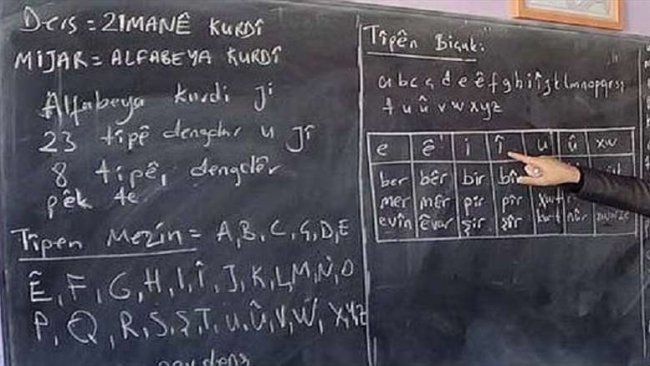 Ders = ZIMANÊ KURDÎ
MIJAR = ALFABEYA KURDÎ
Alfabeya kurdi ji
23 tîpê dengdar u Jî
8 tipê, dengdêr
pêk te
Tîpên Mezin = A, B, C, Ç, D, E
Ê, F, G, H, I, Î, J, K, L, M, N, O
P, Q, R, S, Ş, T, U, Û, V, W, X, Y, Z
Tîpên Biçuk:
a b c ç d e ê f g h i î j k l m n o p q r s ş
t u û v w x y z
e ê i î u û xw
ber bêr bir bîr
mer mêr pir pîr
evîn êvar şir şîr nûr